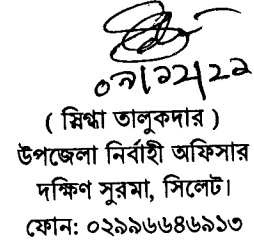 ০৭/১২/২২
( স্নিগ্ধা তালুকদার )
উপজেলা নির্বাহী অফিসার
দক্ষিণ সুরমা, সিলেট।
ফোন: ০২৯৯৬৬৪৬৯১৩